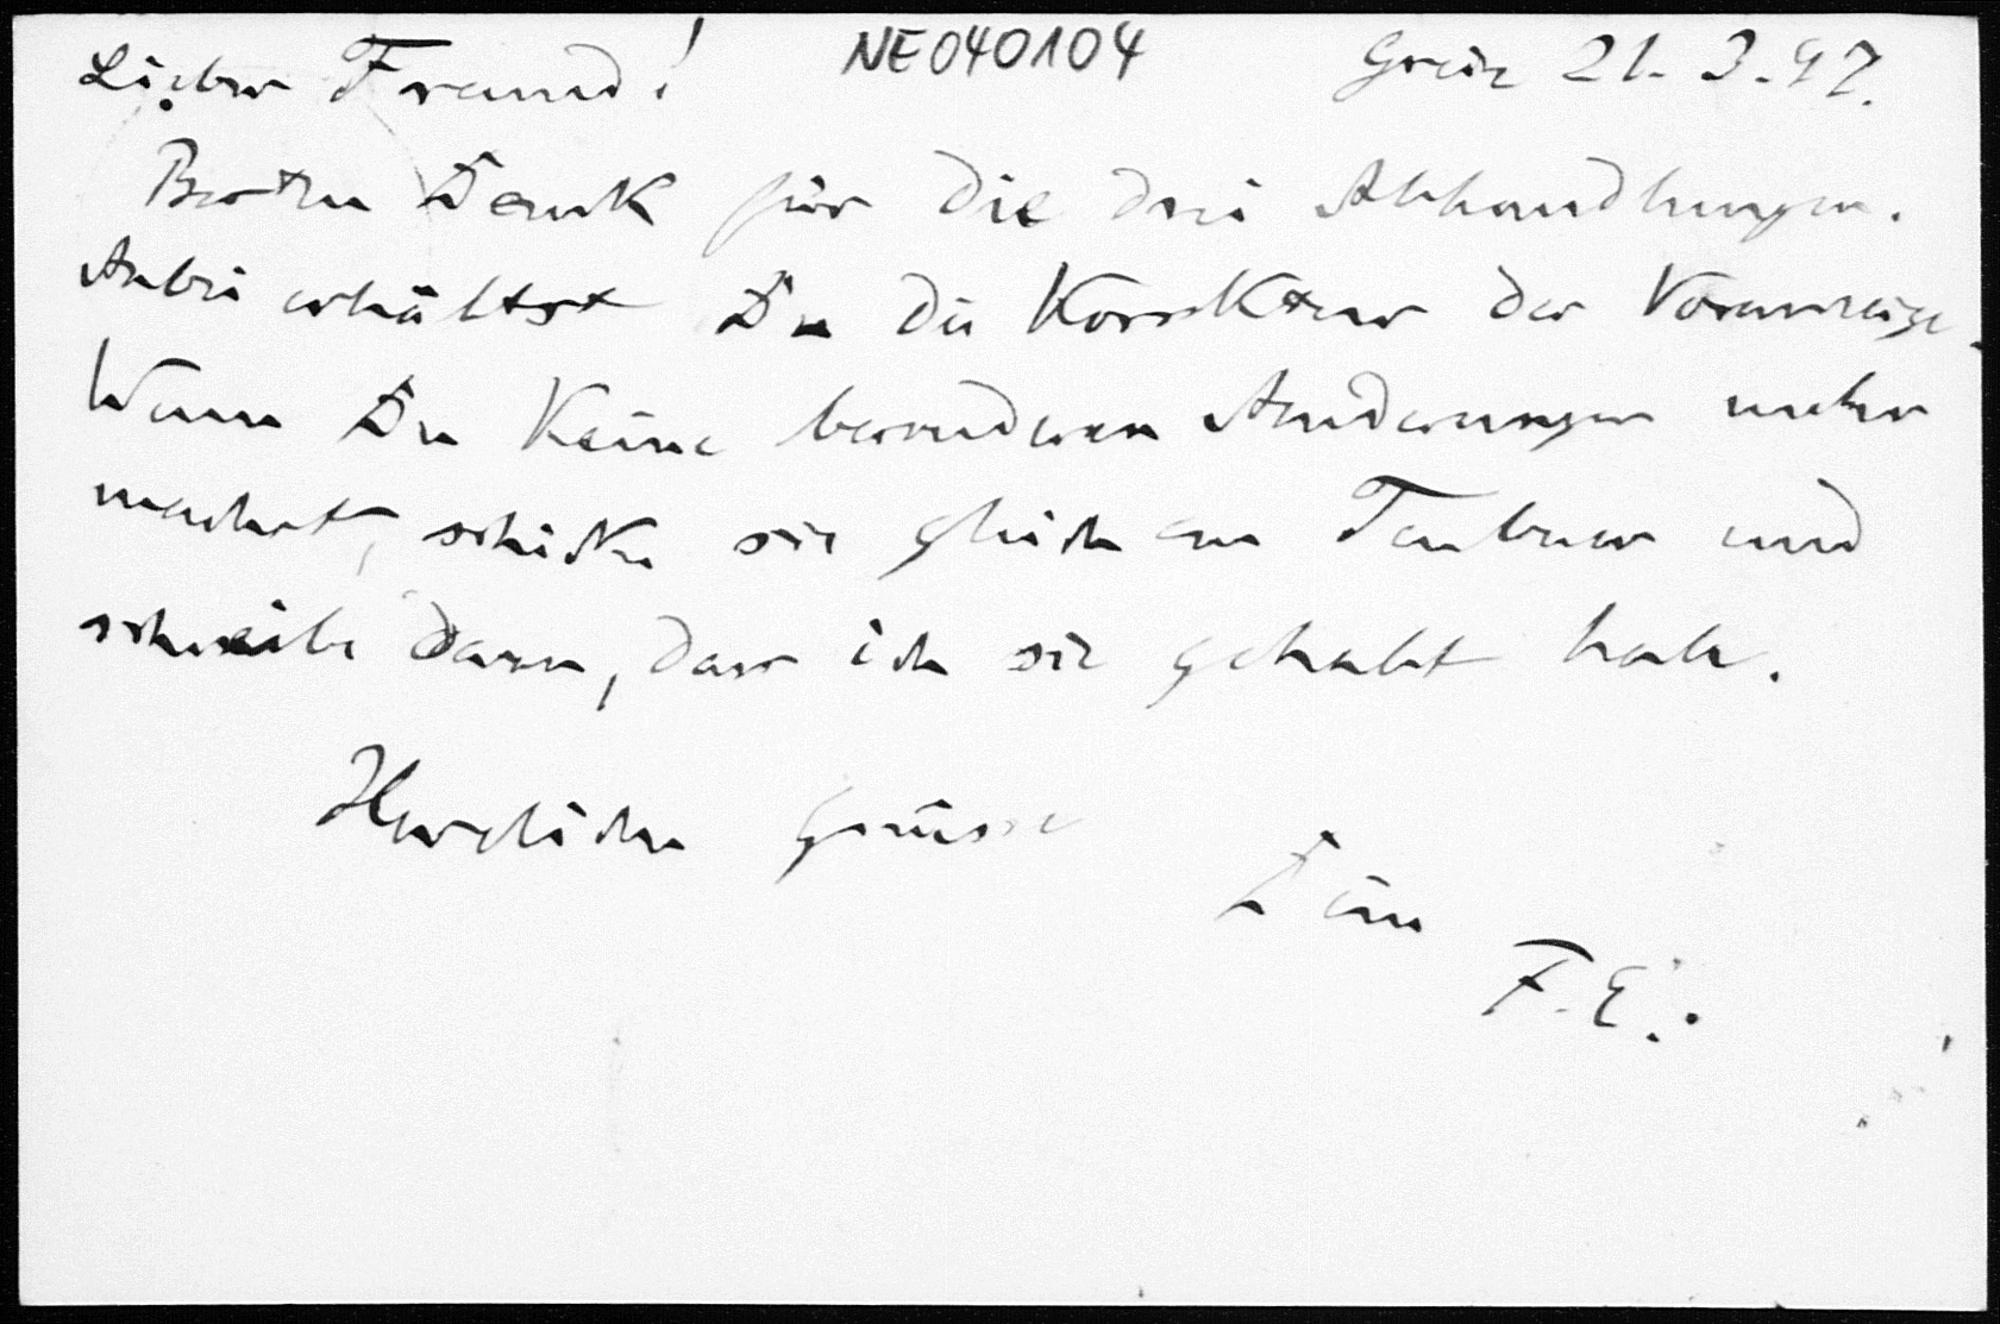 Lieber Freund! NE040104 Greiz 21. 3. 97.
Besten Dank für die drei Abhandlungen.
Anbei erhältst Du die Korrektur der Voranzeige.
Wenn Du keine besonderen Anderungen mehr
machst, schicke sie gleich an Teubner und
schreibe dazu, dass ich sie gehabt habe.
Herzliche Grüsse
Dein
F. E.